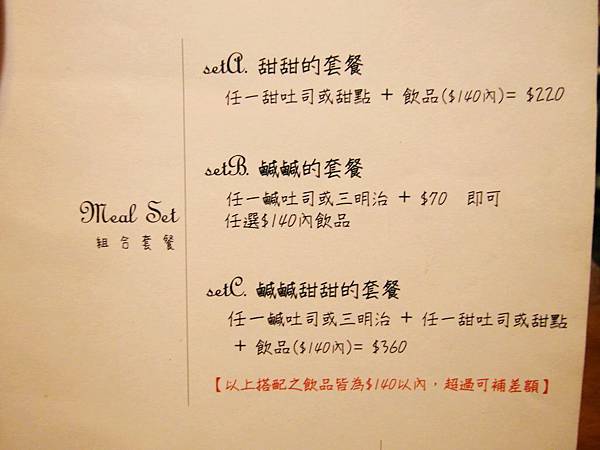 Meal Set
組合套餐
setA. 甜甜的套餐
任一甜吐司或甜點 + 飲品($140內)= $220
setB. 鹹鹹的套餐
任一鹹吐司或三明治 + $70 即可
任選$140內飲品
setC. 鹹鹹甜甜的套餐
任一鹹吐司或三明治 + 任一甜吐司或甜點
+ 飲品($140內)= $360
【以上搭配之飲品皆為$140以內，超過可補差額】